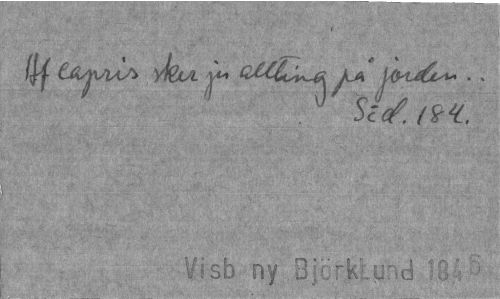 Af capris sker ju allting på jorden..
Sid. 184.
Visb ny BjörkLund 1846